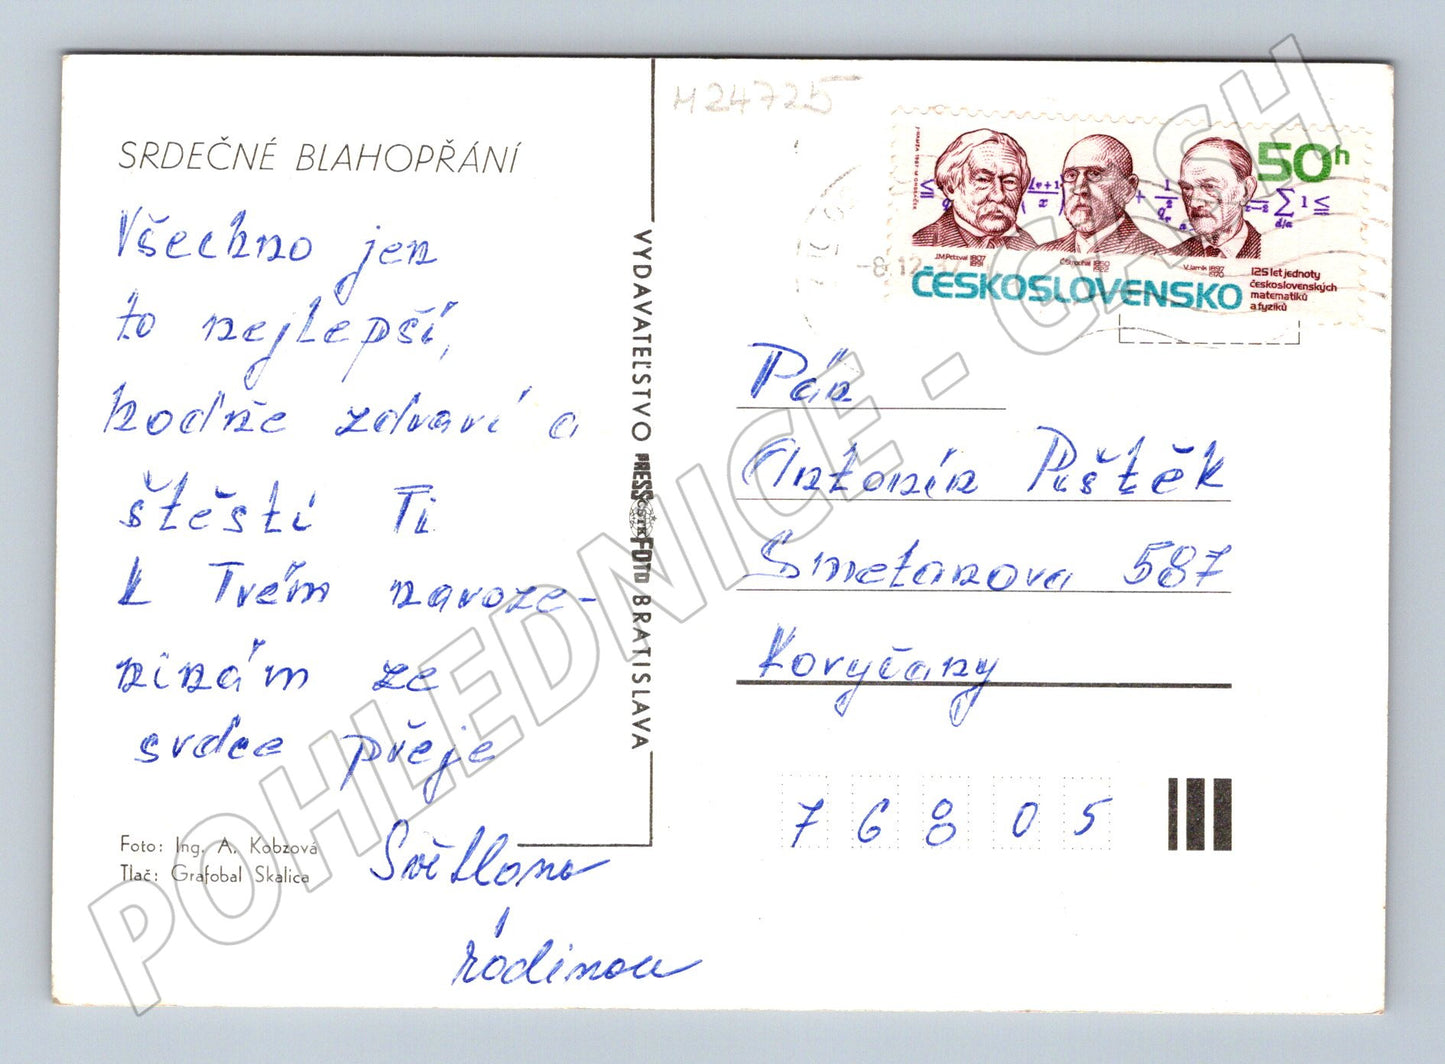 SRDEČNÉ BLAHOPŘÁNÍ
Všechno jen
to nejlepší,
hodně zdraví a
štěstí Ti
k Tvém naroze-
ninám ze
srdce přeje
Světlana
rodinou
Foto: Ing. A. Kobzová
Tlač: Grafobal Skalica
VYDAVATEĽSTVO PRESSFOTO BRATISLAVA
M24725
50h
J.M.Petzval 1807 1891
Č.Strouhal 1850 1922
V.Jarník 1897 1970
ČESKOSLOVENSKO
125 let jednoty
československých
matematiků
a fyziků
Pán
Antonín Pištěk
Smetanova 587
Koryčany
76805
POHLEDNICE - CASH